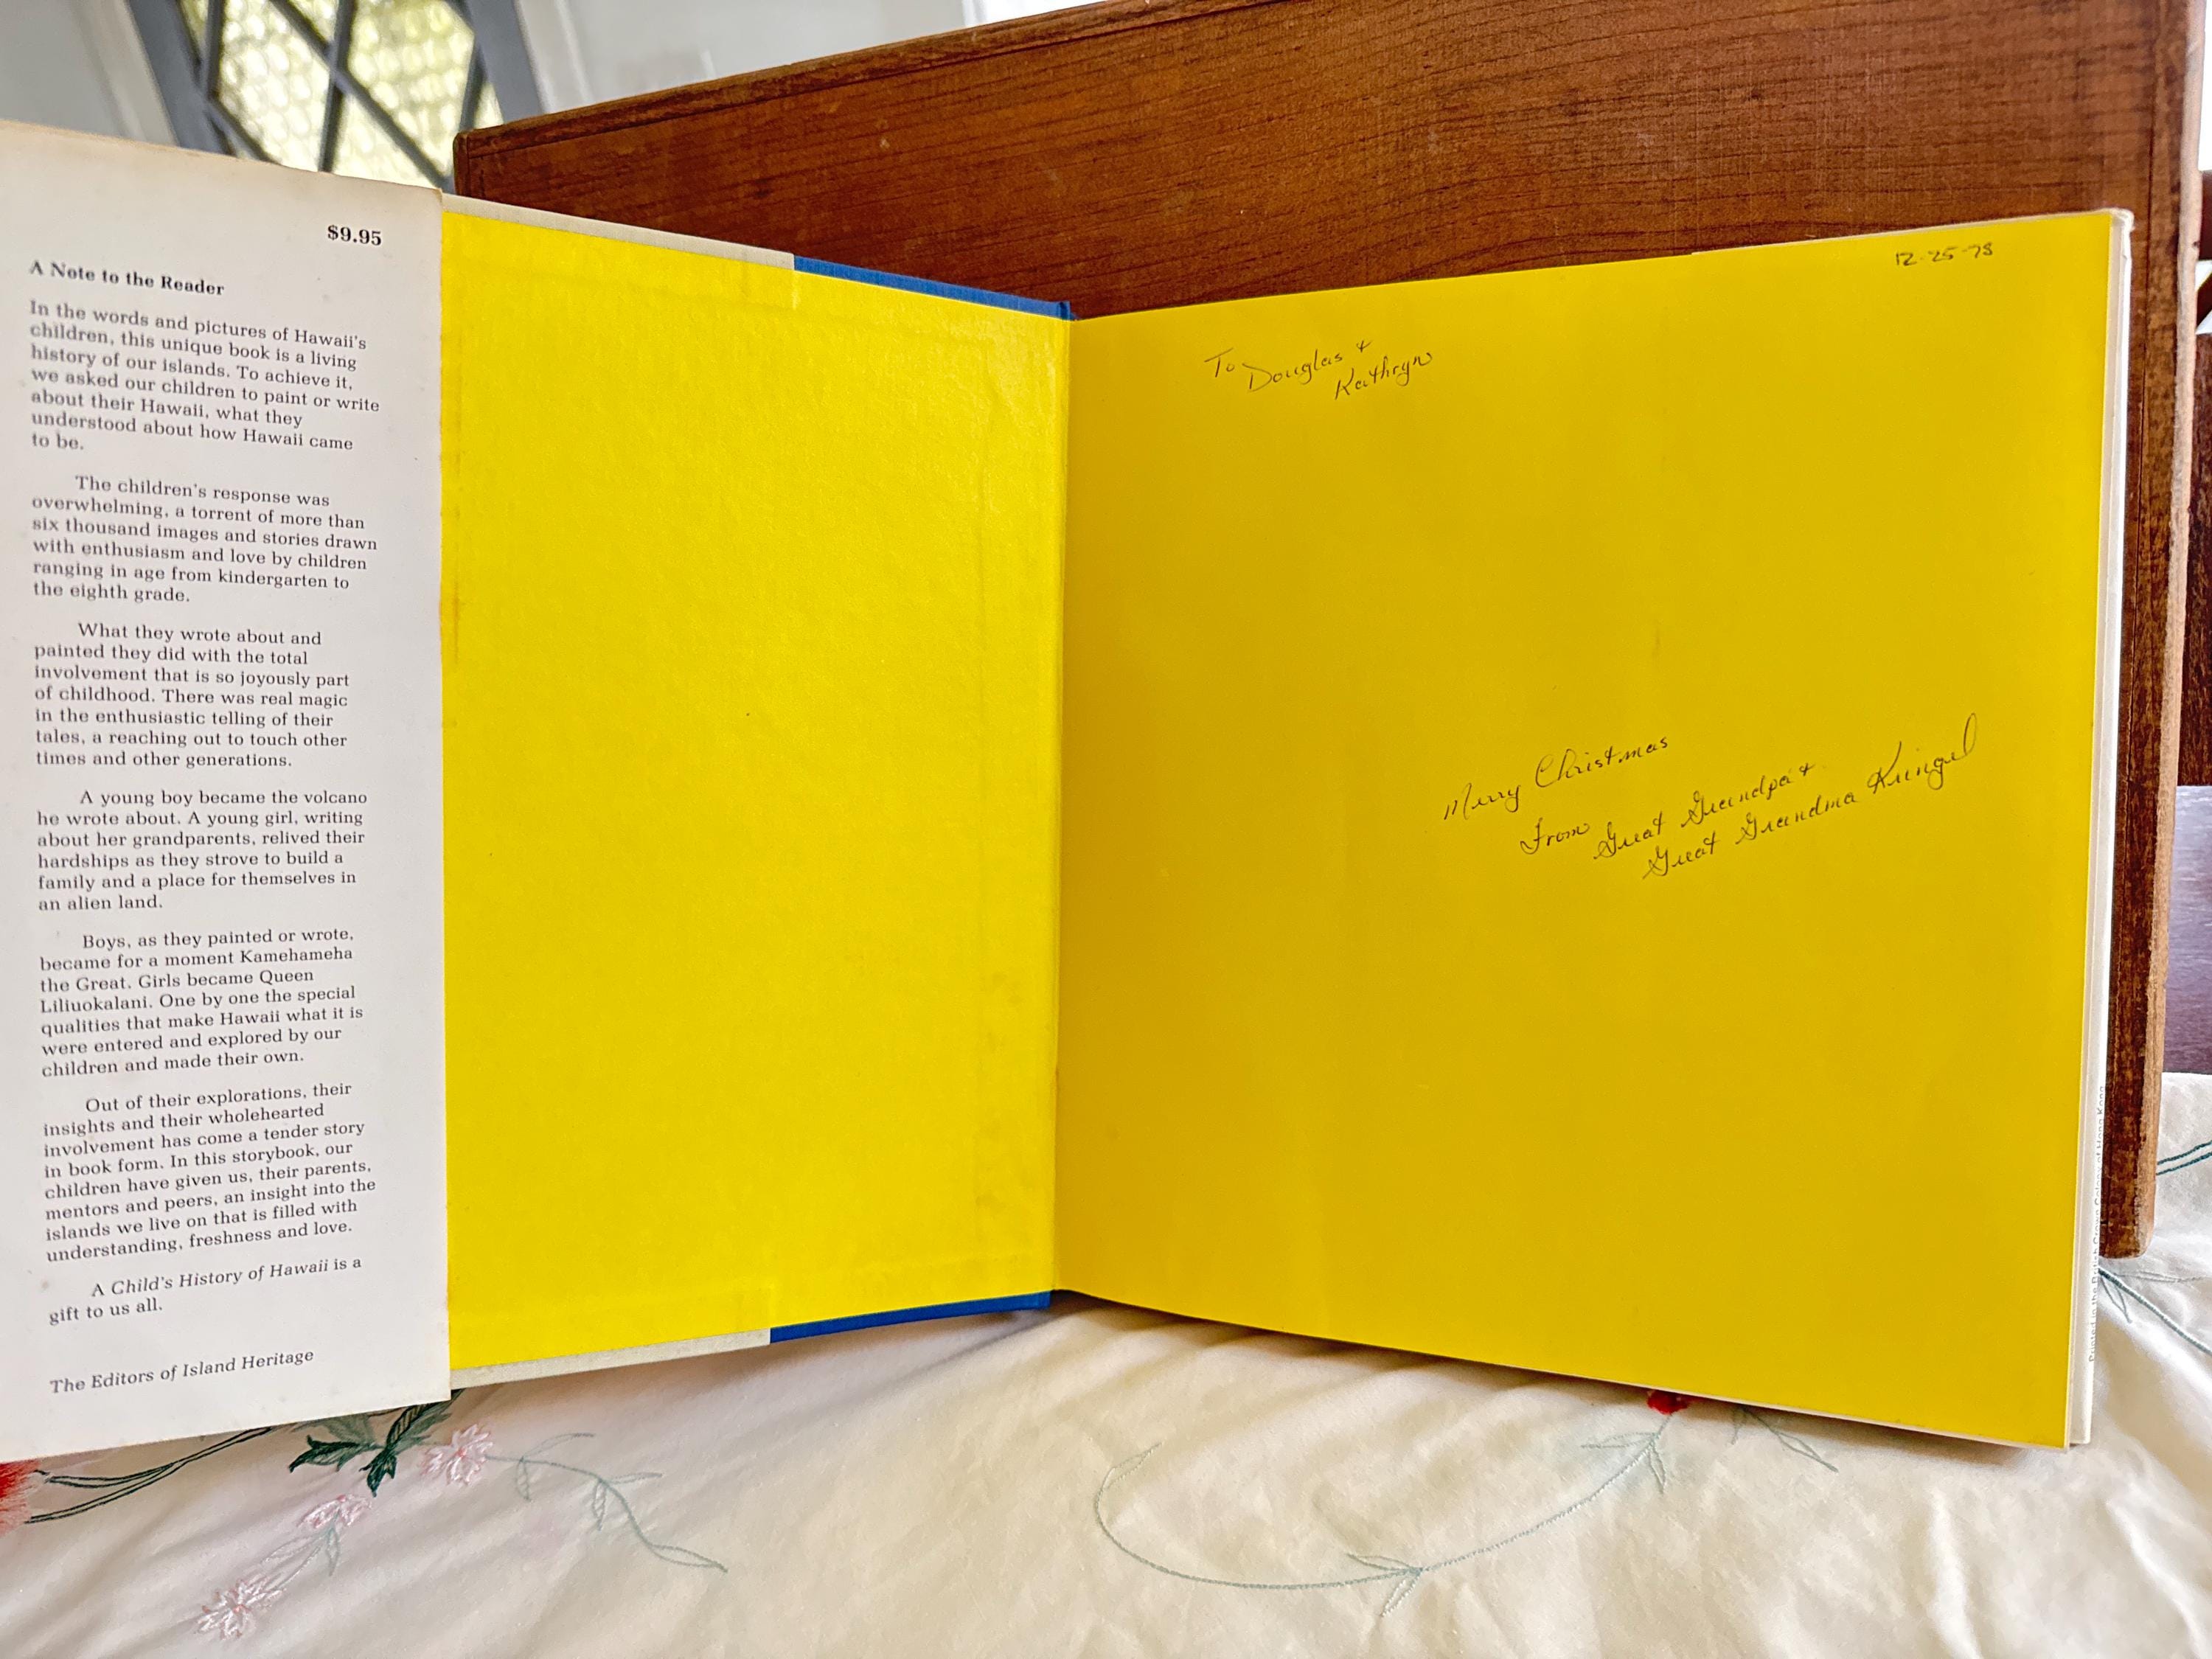 $9.95
A Note to the Reader
In the words and pictures of Hawaii's
children, this unique book is a living
history of our islands. To achieve it,
we asked our children to paint or write
about their Hawaii, what they
understood about how Hawaii came
to be.
The children's response was
overwhelming, a torrent of more than
six thousand images and stories drawn
with enthusiasm and love by children
ranging in age from kindergarten to
the eighth grade.
What they wrote about and
painted they did with the total
involvement that is so joyously part
of childhood. There was real magic
in the enthusiastic telling of their
tales, a reaching out to touch other
times and other generations.
A young boy became the volcano
he wrote about. A young girl, writing
about her grandparents, relived their
hardships as they strove to build a
family and a place for themselves in
an alien land.
Boys, as they painted or wrote,
became for a moment Kamehameha
the Great. Girls became Queen
Liliuokalani. One by one the special
qualities that make Hawaii what it is
were entered and explored by our
children and made their own.
Out of their explorations, their
insights and their wholehearted
involvement has come a tender story
in book form. In this storybook, our
children have given us, their parents,
mentors and peers, an insight into the
islands we live on that is filled with
understanding, freshness and love.
A Child's History of Hawaii is a
gift to us all.
The Editors of Island Heritage
12-25-78
To Douglas +
Kathryn
Merry Christmas
From Great Grandpa +
Great Grandma Kringel
Printed in the British Crown Colony of Hong Kong